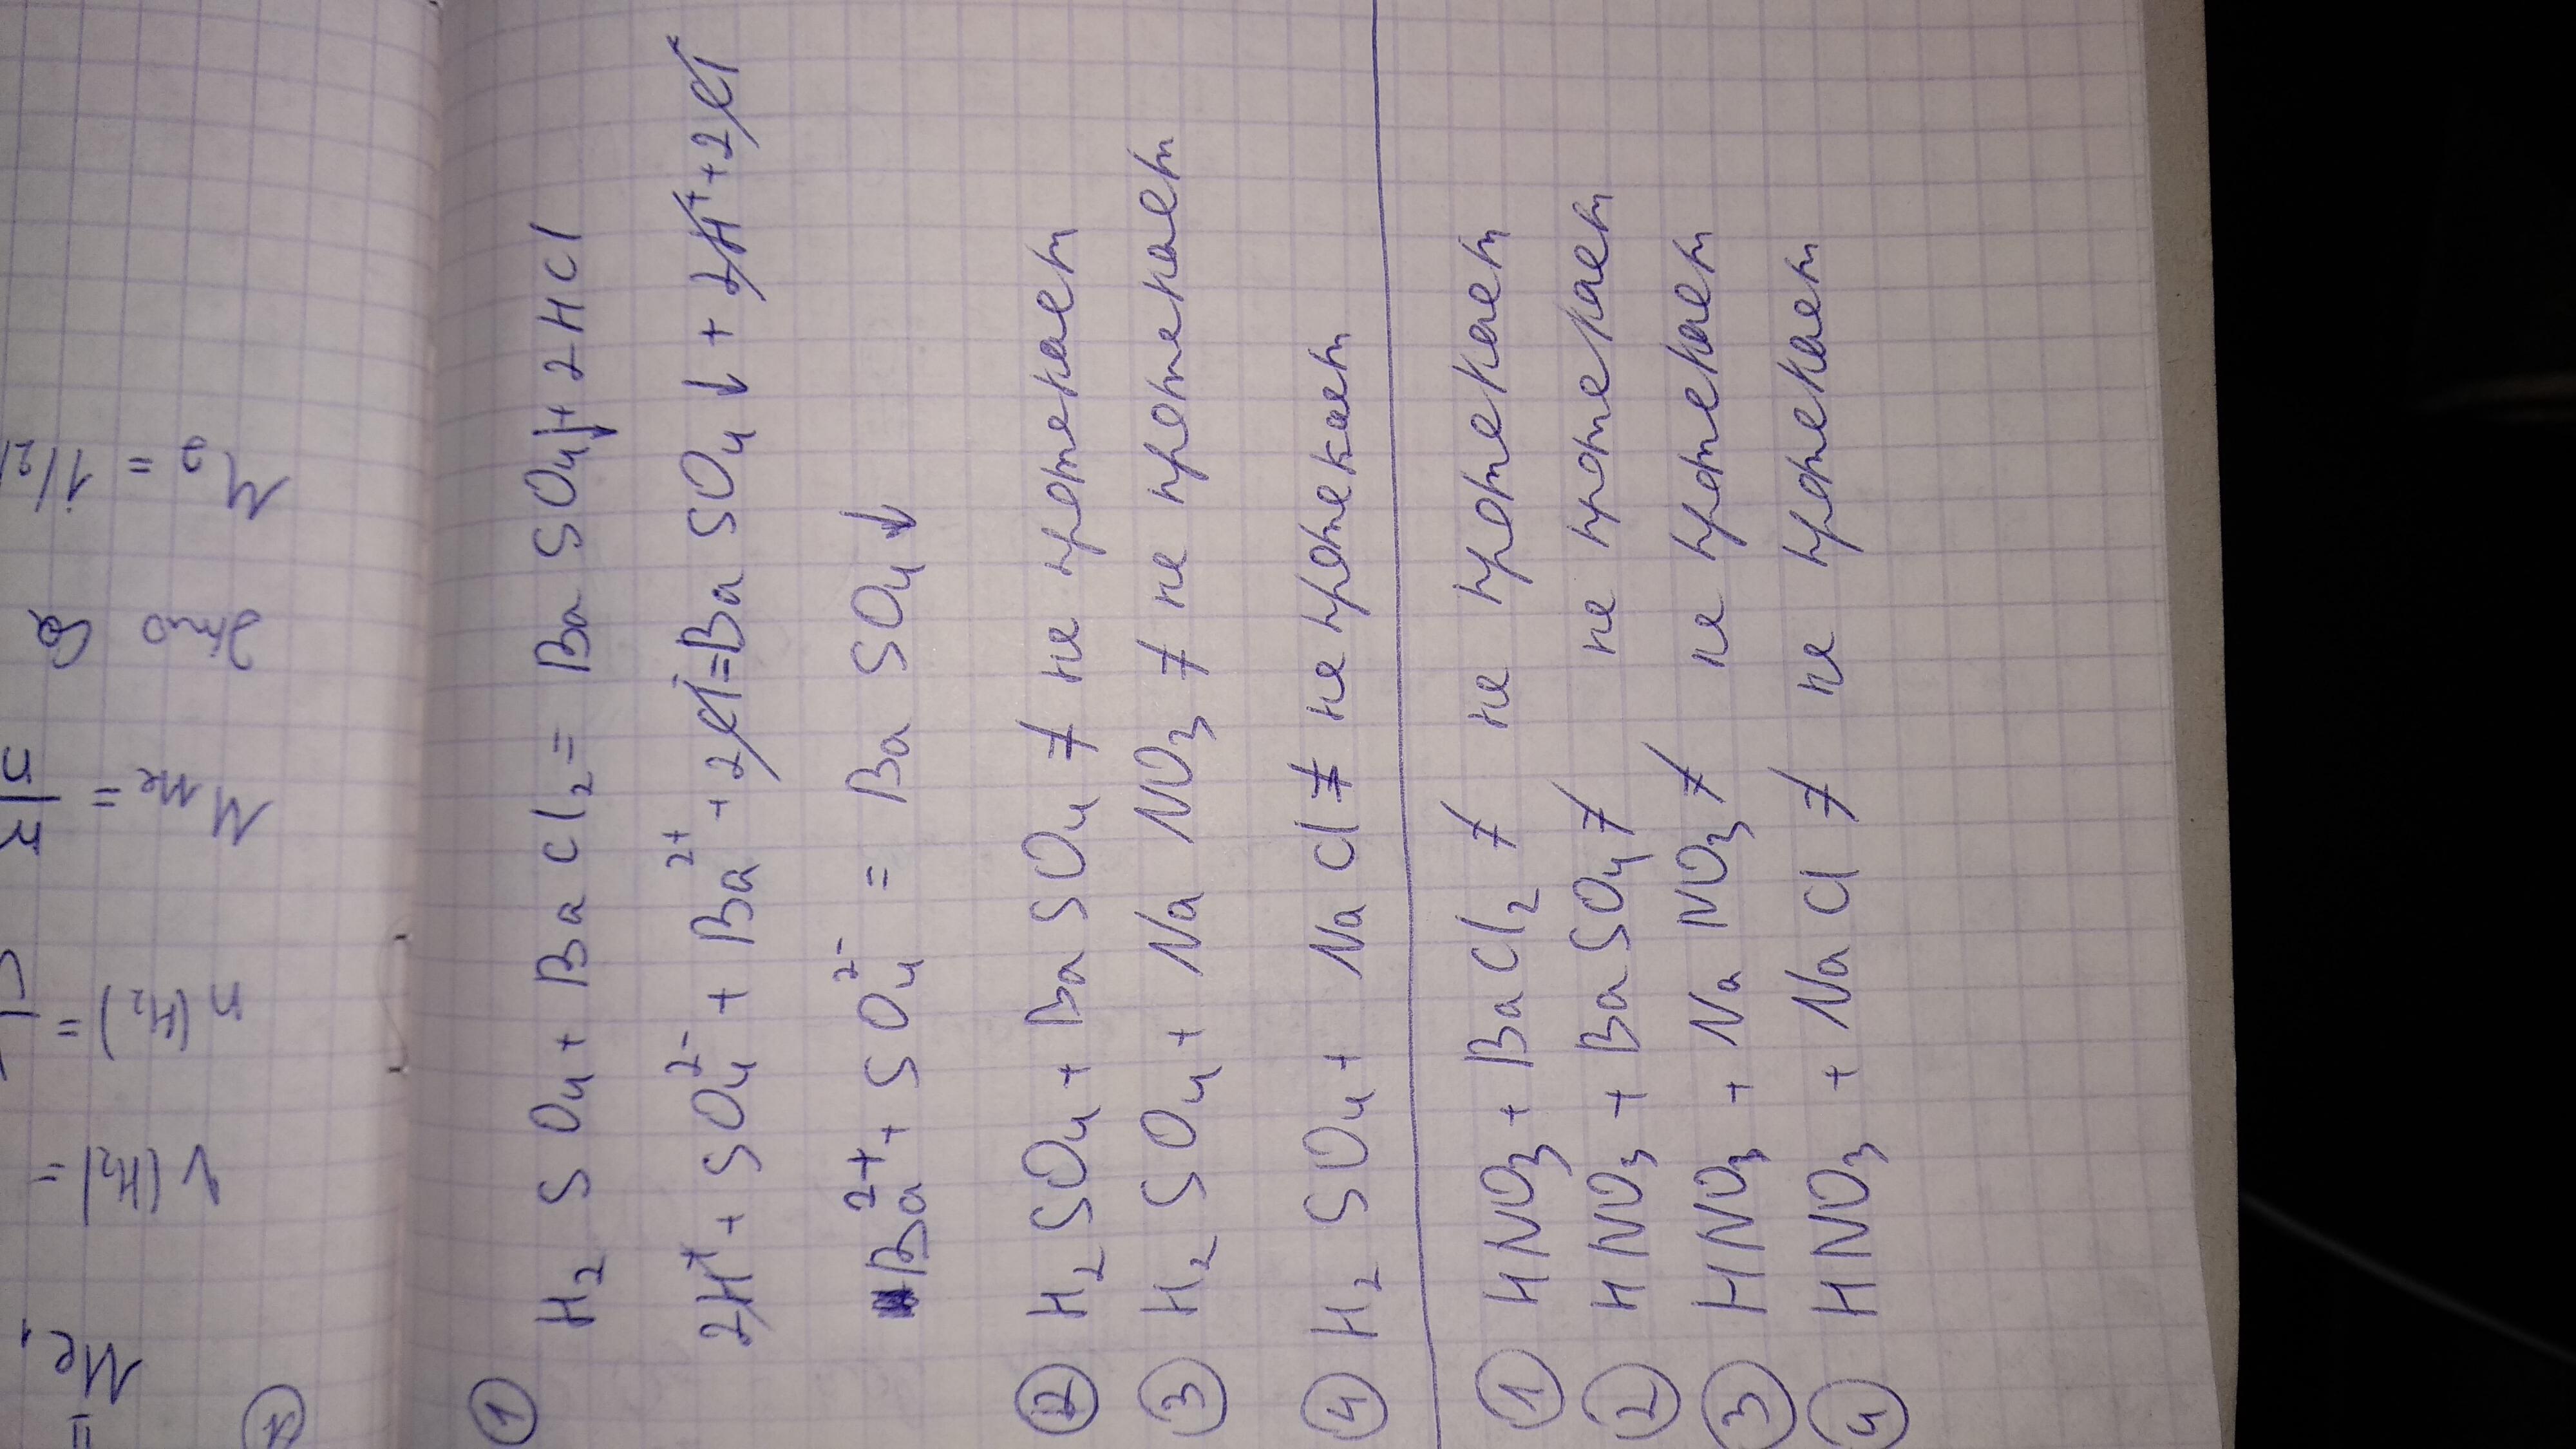 ① H₂SO₄ + BaCl₂ = BaSO₄↓ + 2HCl
2H⁺ + SO₄²⁻ + Ba²⁺ + 2Cl⁻ = BaSO₄↓ + 2H⁺ + 2Cl⁻
Ba²⁺ + SO₄²⁻ = BaSO₄↓
② H₂SO₄ + BaSO₄ ≠ не протекает
③ H₂SO₄ + NaNO₃ ≠ не протекает
④ H₂SO₄ + NaCl ≠ не протекает
① HNO₃ + BaCl₂ ≠ не протекает
② HNO₃ + BaSO₄ ≠ не протекает
③ HNO₃ + NaNO₃ ≠ не протекает
④ HNO₃ + NaCl ≠ не протекает
V(H₂) =
n(H₂) =
M Me =
это
Mэ = 1/2